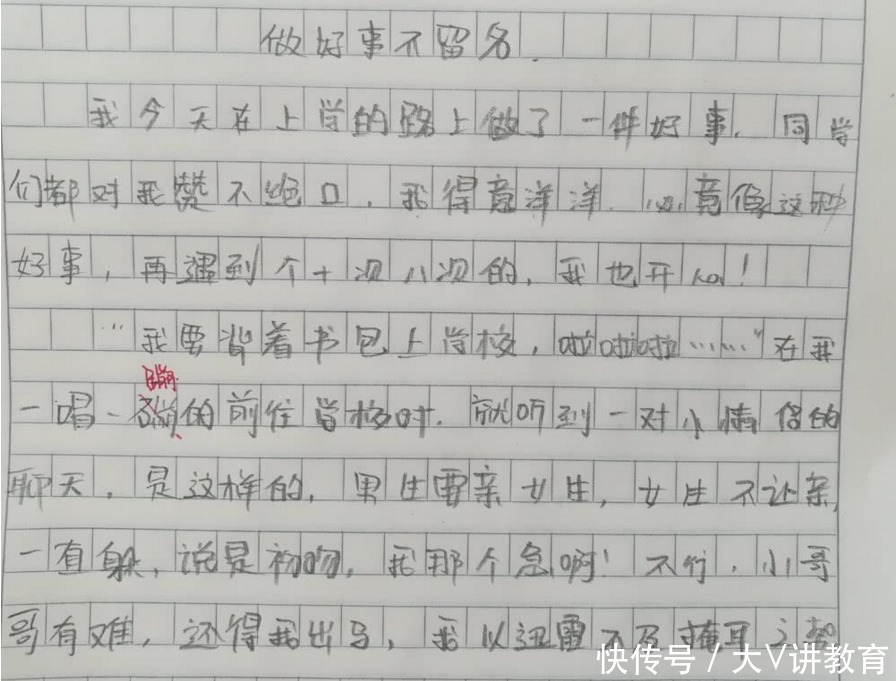 做好事不留名.
我今天在上学的路上做了一件好事.同学
们都对我赞不绝口,我得意洋洋.必竟像这种
好事,再遇到个十次八次的,我也开心!
"我要背着书包上学校,啦啦啦……"在我
蹦
一唱一蹦的前往学校时.就听到一对小情侣的
聊天,是这样的,男生要亲女生,女生不让亲,
一直躲,说是初吻,我那个急啊!不行,小哥
哥有难,还得我出马,我以迅雷不及掩耳之势
快传号 / 大V讲教育